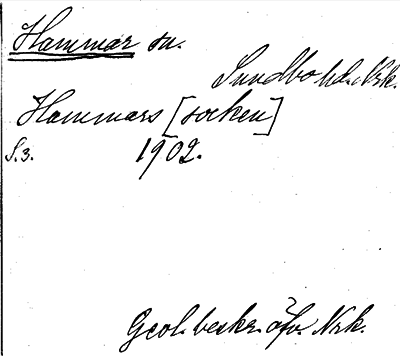 Hammar sn.
Sundbo hd. Nrk.
Hammars [socken]
S. 3. 1902.
Geol. beskr. öfv. Nrk.